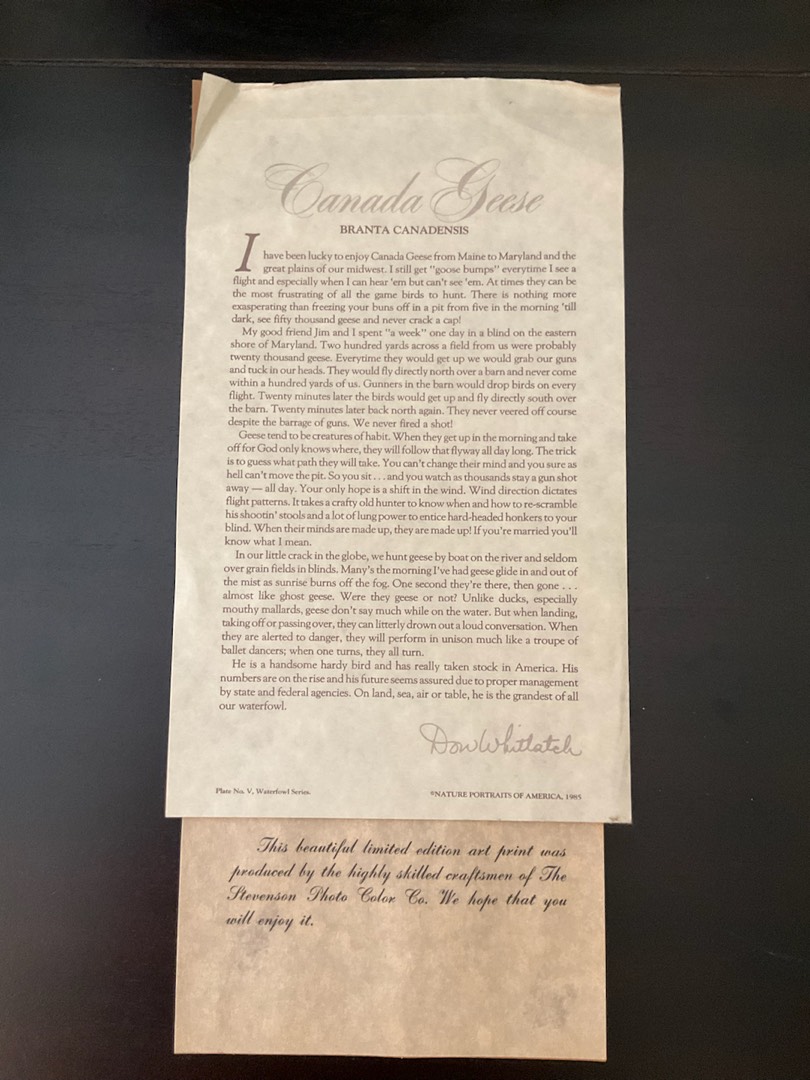 Canada Geese
BRANTA CANADENSIS
I have been lucky to enjoy Canada Geese from Maine to Maryland and the
great plains of our midwest. I still get "goose bumps" everytime I see a
flight and especially when I can hear 'em but can't see 'em. At times they can be
the most frustrating of all the game birds to hunt. There is nothing more
exasperating than freezing your buns off in a pit from five in the morning 'till
dark, see fifty thousand geese and never crack a cap!
My good friend Jim and I spent "a week" one day in a blind on the eastern
shore of Maryland. Two hundred yards across a field from us were probably
twenty thousand geese. Everytime they would get up we would grab our guns
and tuck in our heads. They would fly directly north over a barn and never come
within a hundred yards of us. Gunners in the barn would drop birds on every
flight. Twenty minutes later the birds would get up and fly directly south over
the barn. Twenty minutes later back north again. They never veered off course
despite the barrage of guns. We never fired a shot!
Geese tend to be creatures of habit. When they get up in the morning and take
off for God only knows where, they will follow that flyway all day long. The trick
is to guess what path they will take. You can't change their mind and you sure as
hell can't move the pit. So you sit . . . and you watch as thousands stay a gun shot
away — all day. Your only hope is a shift in the wind. Wind direction dictates
flight patterns. It takes a crafty old hunter to know when and how to re-scramble
his shootin' stools and a lot of lung power to entice hard-headed honkers to your
blind. When their minds are made up, they are made up! If you're married you'll
know what I mean.
In our little crack in the globe, we hunt geese by boat on the river and seldom
over grain fields in blinds. Many's the morning I've had geese glide in and out of
the mist as sunrise burns off the fog. One second they're there, then gone . . .
almost like ghost geese. Were they geese or not? Unlike ducks, especially
mouthy mallards, geese don't say much while on the water. But when landing,
taking off or passing over, they can litterly drown out a loud conversation. When
they are alerted to danger, they will perform in unison much like a troupe of
ballet dancers; when one turns, they all turn.
He is a handsome hardy bird and has really taken stock in America. His
numbers are on the rise and his future seems assured due to proper management
by state and federal agencies. On land, sea, air or table, he is the grandest of all
our waterfowl.
Don Whitlatch
Plate No. V, Waterfowl Series.
©NATURE PORTRAITS OF AMERICA, 1985
This beautiful limited edition art print was
produced by the highly skilled craftsmen of The
Stevenson Photo Color Co. We hope that you
will enjoy it.